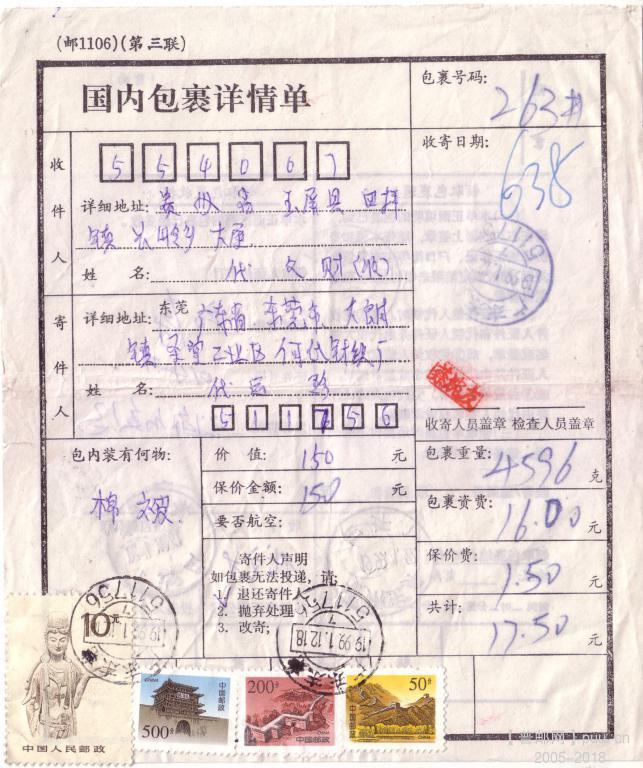 (邮1106)(第三联)
国内包裹详情单
包裹号码:
263#
收寄日期:
638
收件人
554067
详细地址: 贵州省 玉屏县 田坪
镇 大屏
姓 名: 代 文 财(收)
寄件人
详细地址: 东莞 广东省 东莞市 大朗
镇 工业区 何代针织厂
姓 名:
511756
收寄人员盖章 检查人员盖章
包内装有何物:
棉
价 值: 150 元
保价金额: 150 元
要否航空:
寄件人声明
如包裹无法投递,请:
1. 退还寄件人
2. 抛弃处理
3. 改寄;
包裹重量: 4596 克
包裹资费: 16.00 元
保价费: 1.50 元
共计: 17.50 元
511756
1999.1.12.18
10元
中国人民邮政
500分
中国邮政
200分
中国邮政
50分
中国邮政
[普邮网] puu.cn
2005-2018